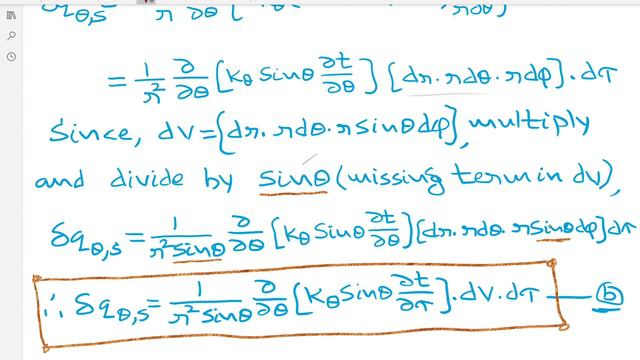 = 1/r² ∂/∂θ [kθ sinθ ∂t/∂θ] [dr. rdθ. rdφ]. dτ
Since, dV = {dr. rdθ. r sinθ dφ}, multiply
and divide by sinθ (missing term in dv),
δqθ,s = 1/r² sinθ ∂/∂θ [kθ sinθ ∂t/∂θ] [dr. rdθ. r sinθ dφ] dτ
∴ δqθ,s = 1/r² sinθ ∂/∂θ [kθ sinθ ∂t/∂τ] . dV. dτ — ⓑ